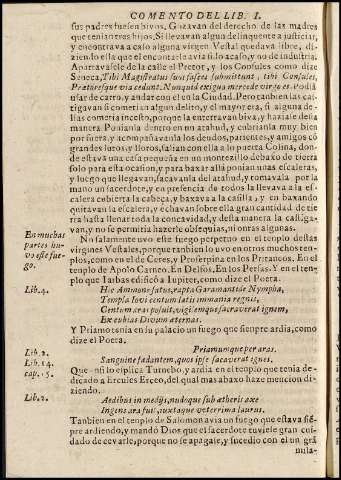 COMENTO DEL LIB. I.
sus padres fuesen bivos. Gozavan del derecho de las madres
que tenian tres hijos. Si llevavan algun delinquente a justiciar,
y encontrava a caso alguna virgen Vestal quedava libre, di-
ziendo ella que el encontrarle avia sido acaso, y no de industria.
Apartavase le de la calle el Pretor, y los Consules como dize
Seneca, Tibi Magistratus suos fasces submittunt, tibi Consules,
Prætoresque via cedunt. Nunquid exigua mercede virgo es. Podiã
usar de carro, y andar con el en la Ciudad. Pero tanbien las cas-
tigavan si cometian algun delito, y el mayor era, si alguna de-
llas cometia incesto, porque la enterravan biva, y haziase desta
manera Ponianla dentro en un atahud, y cubrianla muy bien
por fuera, y aconpañavan la los deudos, parientes, y amigos cõ
grandes lutos y lloros, salian con ella a lo puerta Colina, don-
de estava una casa pequeña en un montezillo debaxo de tierra
solo para esta ocasion, y para baxar alla ponian unas escaleras,
y luego que llegavan, sacavanla del ataud, y tomavala por la
mano un sacerdote, y en presencia de todos la llevava a la es-
calera cubierta la cabeça, y baxava a la casilla, y en baxando
quitavan la escalera, y echavan sobre ella gran cantidad de tie
rra hasta llenar toda la concavidad, y desta manera la casti.ga-
van, y no se permitia hazerle obsequias, ni onras algunas.
En muchas
partes hu-
vo este fue-
go.
No solamente uvo este fuego perpetuo en el tenplo destas
virgines Vestales, porque tanbien lo uvo en otros muchos ten-
plos, como en el de Ceres, y Proserpina en los Pritancos. En el
tenplo de Apolo Carneo. En Delfos, En los Persas. Y en el ten-
plo que Iarbas edificò a Iupiter, como dize el Poeta.
Lib. 4.
Hic Ammone satus, rapta Garamantide Nympha,
Templa Iovi centum latis immania regnis,
Centum aras posuit, vigilemque sacraverat ignem,
Excubias Divum æternas.
Y Priamo tenia en su palacio un fuego que sienpre ardia, como
dize el Poeta.
Lib. 2.
Priamumque per aras.
Lib. 14.
cap. 15.
Sanguine fœdantem, quos ipse sacaverat ignes.
Que ansi lo esplica Turnebo, y ardia en el tenplo que tenia de-
dicado a Ercules Erceo, del qual mas abaxo haze mencion di-
ziendo.
Lib. 2.
Aedibus in medijs, nudoque sub ætheris axe
Ingens ara fuit, iuxtaque veterrima laurus.
Tanbien en el tenplo de Salomon avia un fuego que estava siẽ-
pre ardiendo, y mandò Dios que el sacerdote tuviese gran cui-
dado de cevarle, porque no se apagase, y sucedio con el un grã
mila-